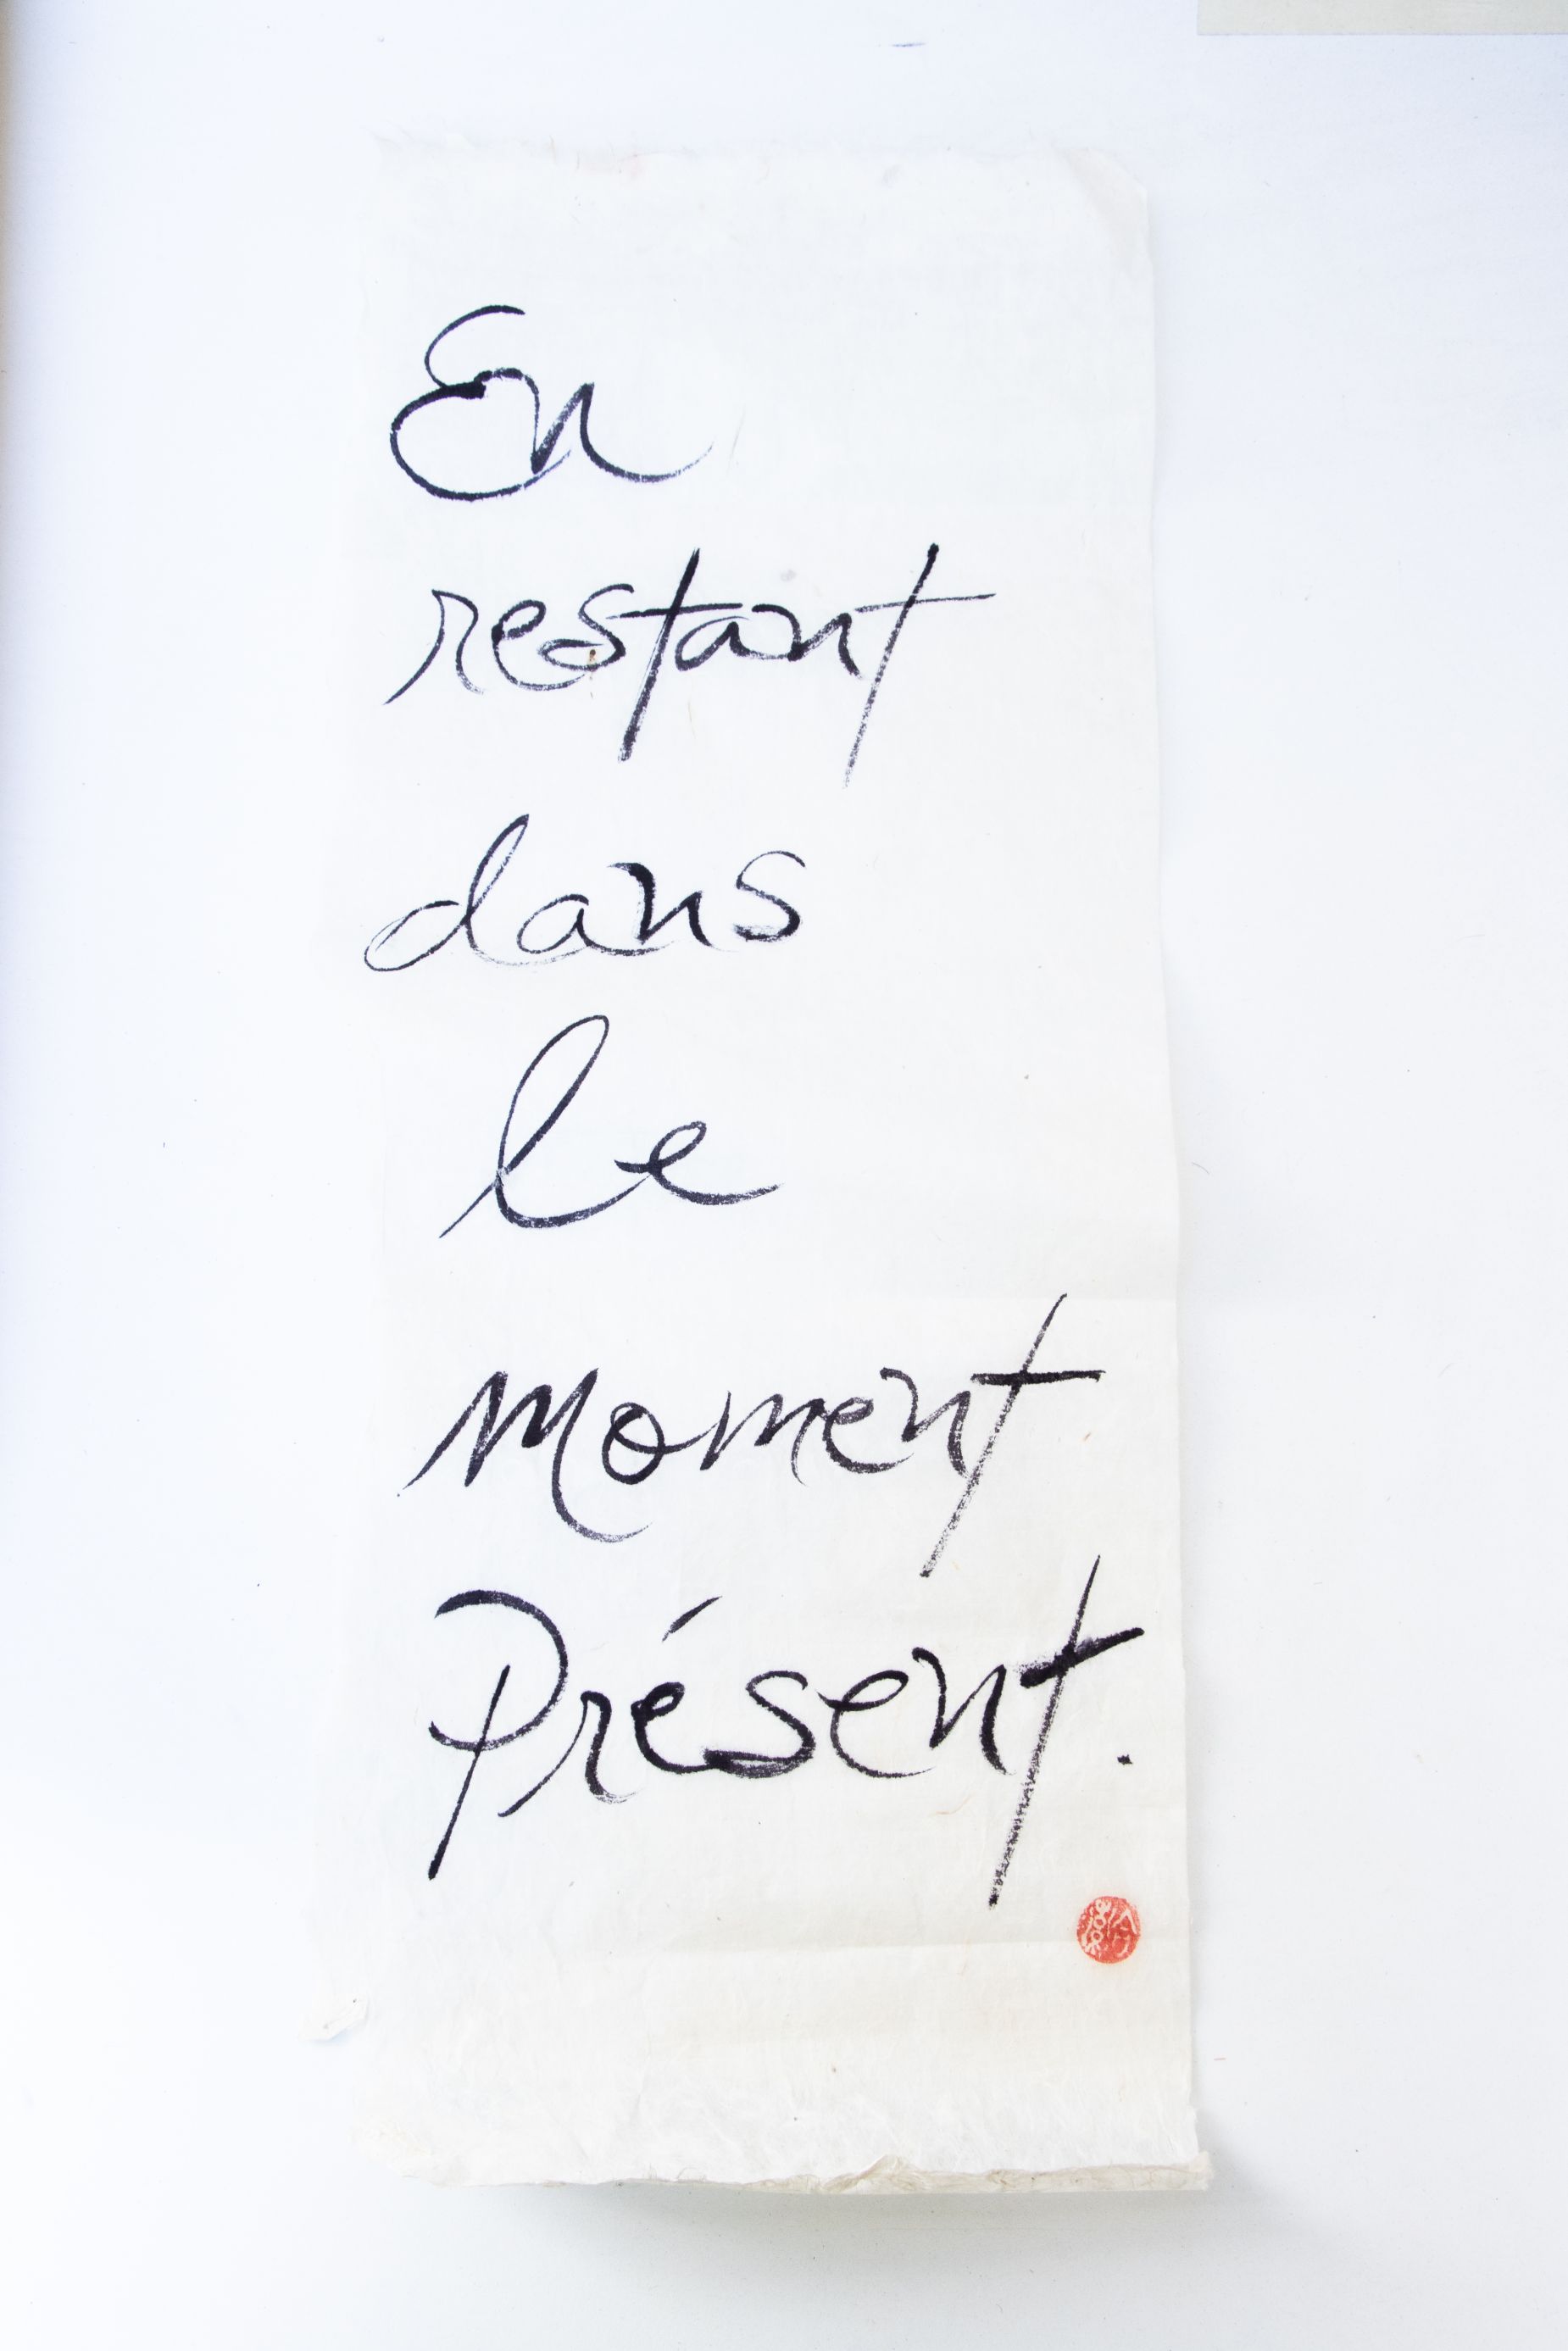 En
restant
dans
le
moment
Présent.